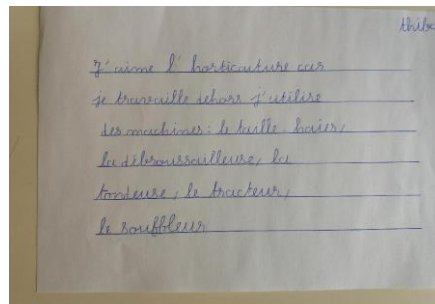 thibe
J'aime l'horticouture car
je travaille dehors j'utilise
des machines : le taille-haies,
la débroussailleuse, la
tondeuse, le tracteur,
le souffleur